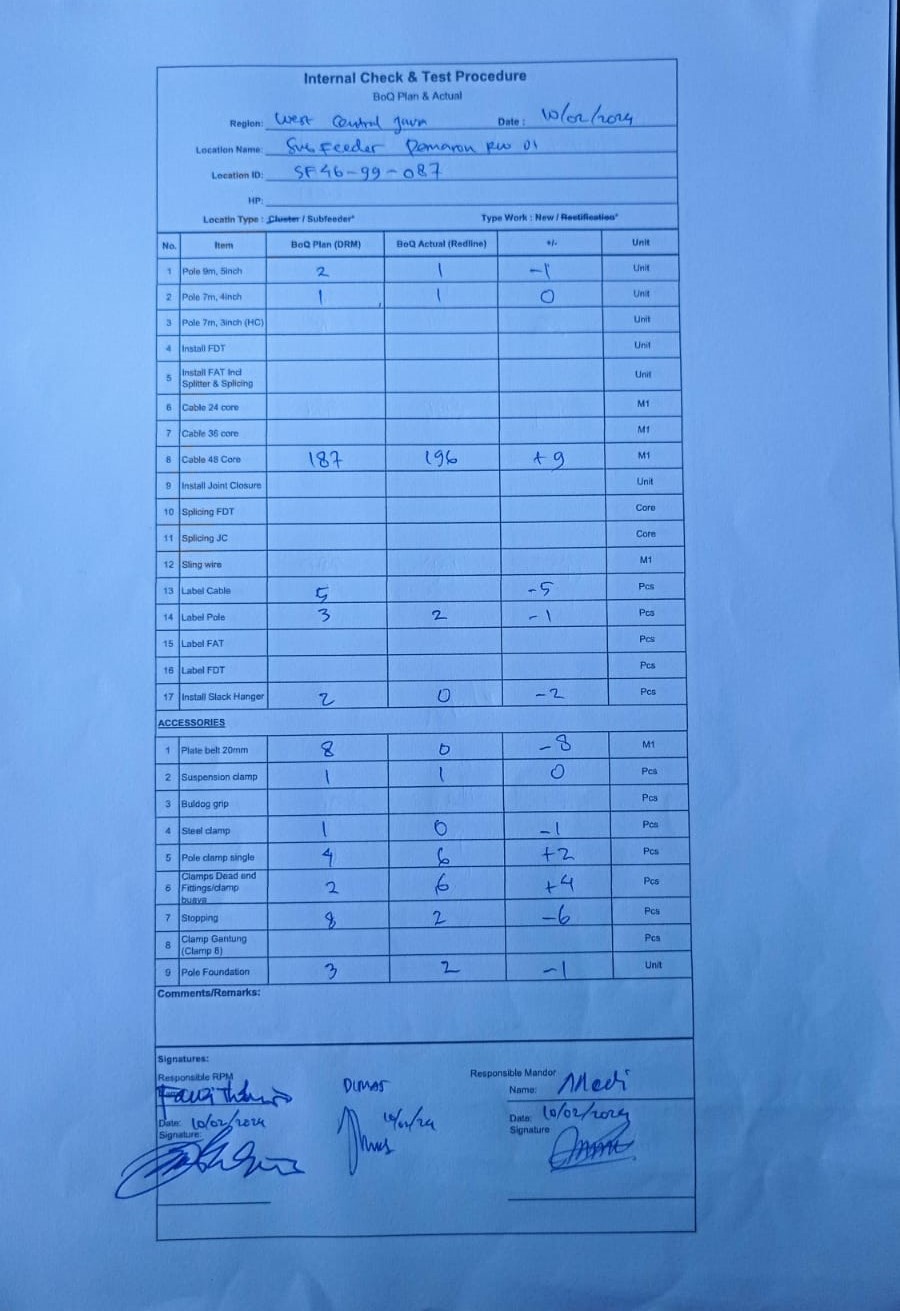 Internal Check & Test Procedure
BoQ Plan & Actual
Region: West Central Java Date : 10/02/2024
Location Name: Sub Feeder Pamaron RW 01
Location ID: SF46-99-087
HP:
Locatin Type : Cluster / Subfeeder* Type Work : New / Rectification*
No. Item BoQ Plan (DRM) BoQ Actual (Redline) +/- Unit
1 Pole 9m, 5inch 2 1 -1 Unit
2 Pole 7m, 4inch 1 1 0 Unit
3 Pole 7m, 3inch (HC) Unit
4 Install FDT Unit
5 Install FAT Incl Unit
Splitter & Splicing
6 Cable 24 core M1
7 Cable 36 core M1
8 Cable 48 Core 187 196 +9 M1
9 Install Joint Closure Unit
10 Splicing FDT Core
11 Splicing JC Core
12 Sling wire M1
13 Label Cable 5 -5 Pcs
14 Label Pole 3 2 -1 Pcs
15 Label FAT Pcs
16 Label FDT Pcs
17 Install Slack Hanger 2 0 -2 Pcs
ACCESSORIES
1 Plate belt 20mm 8 0 -8 M1
2 Suspension clamp 1 1 0 Pcs
3 Buldog grip Pcs
4 Steel clamp 1 0 -1 Pcs
5 Pole clamp single 4 6 +2 Pcs
Clamps Dead end
6 Fittings/clamp 2 6 +4 Pcs
buaya
7 Stopping 8 2 -6 Pcs
8 Clamp Gantung Pcs
(Clamp 6)
9 Pole Foundation 3 2 -1 Unit
Comments/Remarks:
Signatures:
Responsible RPM DIMAS Responsible Mandor
Name: Medi
Date: 10/02/2024 Date: 10/02/2024
Signature: Signature